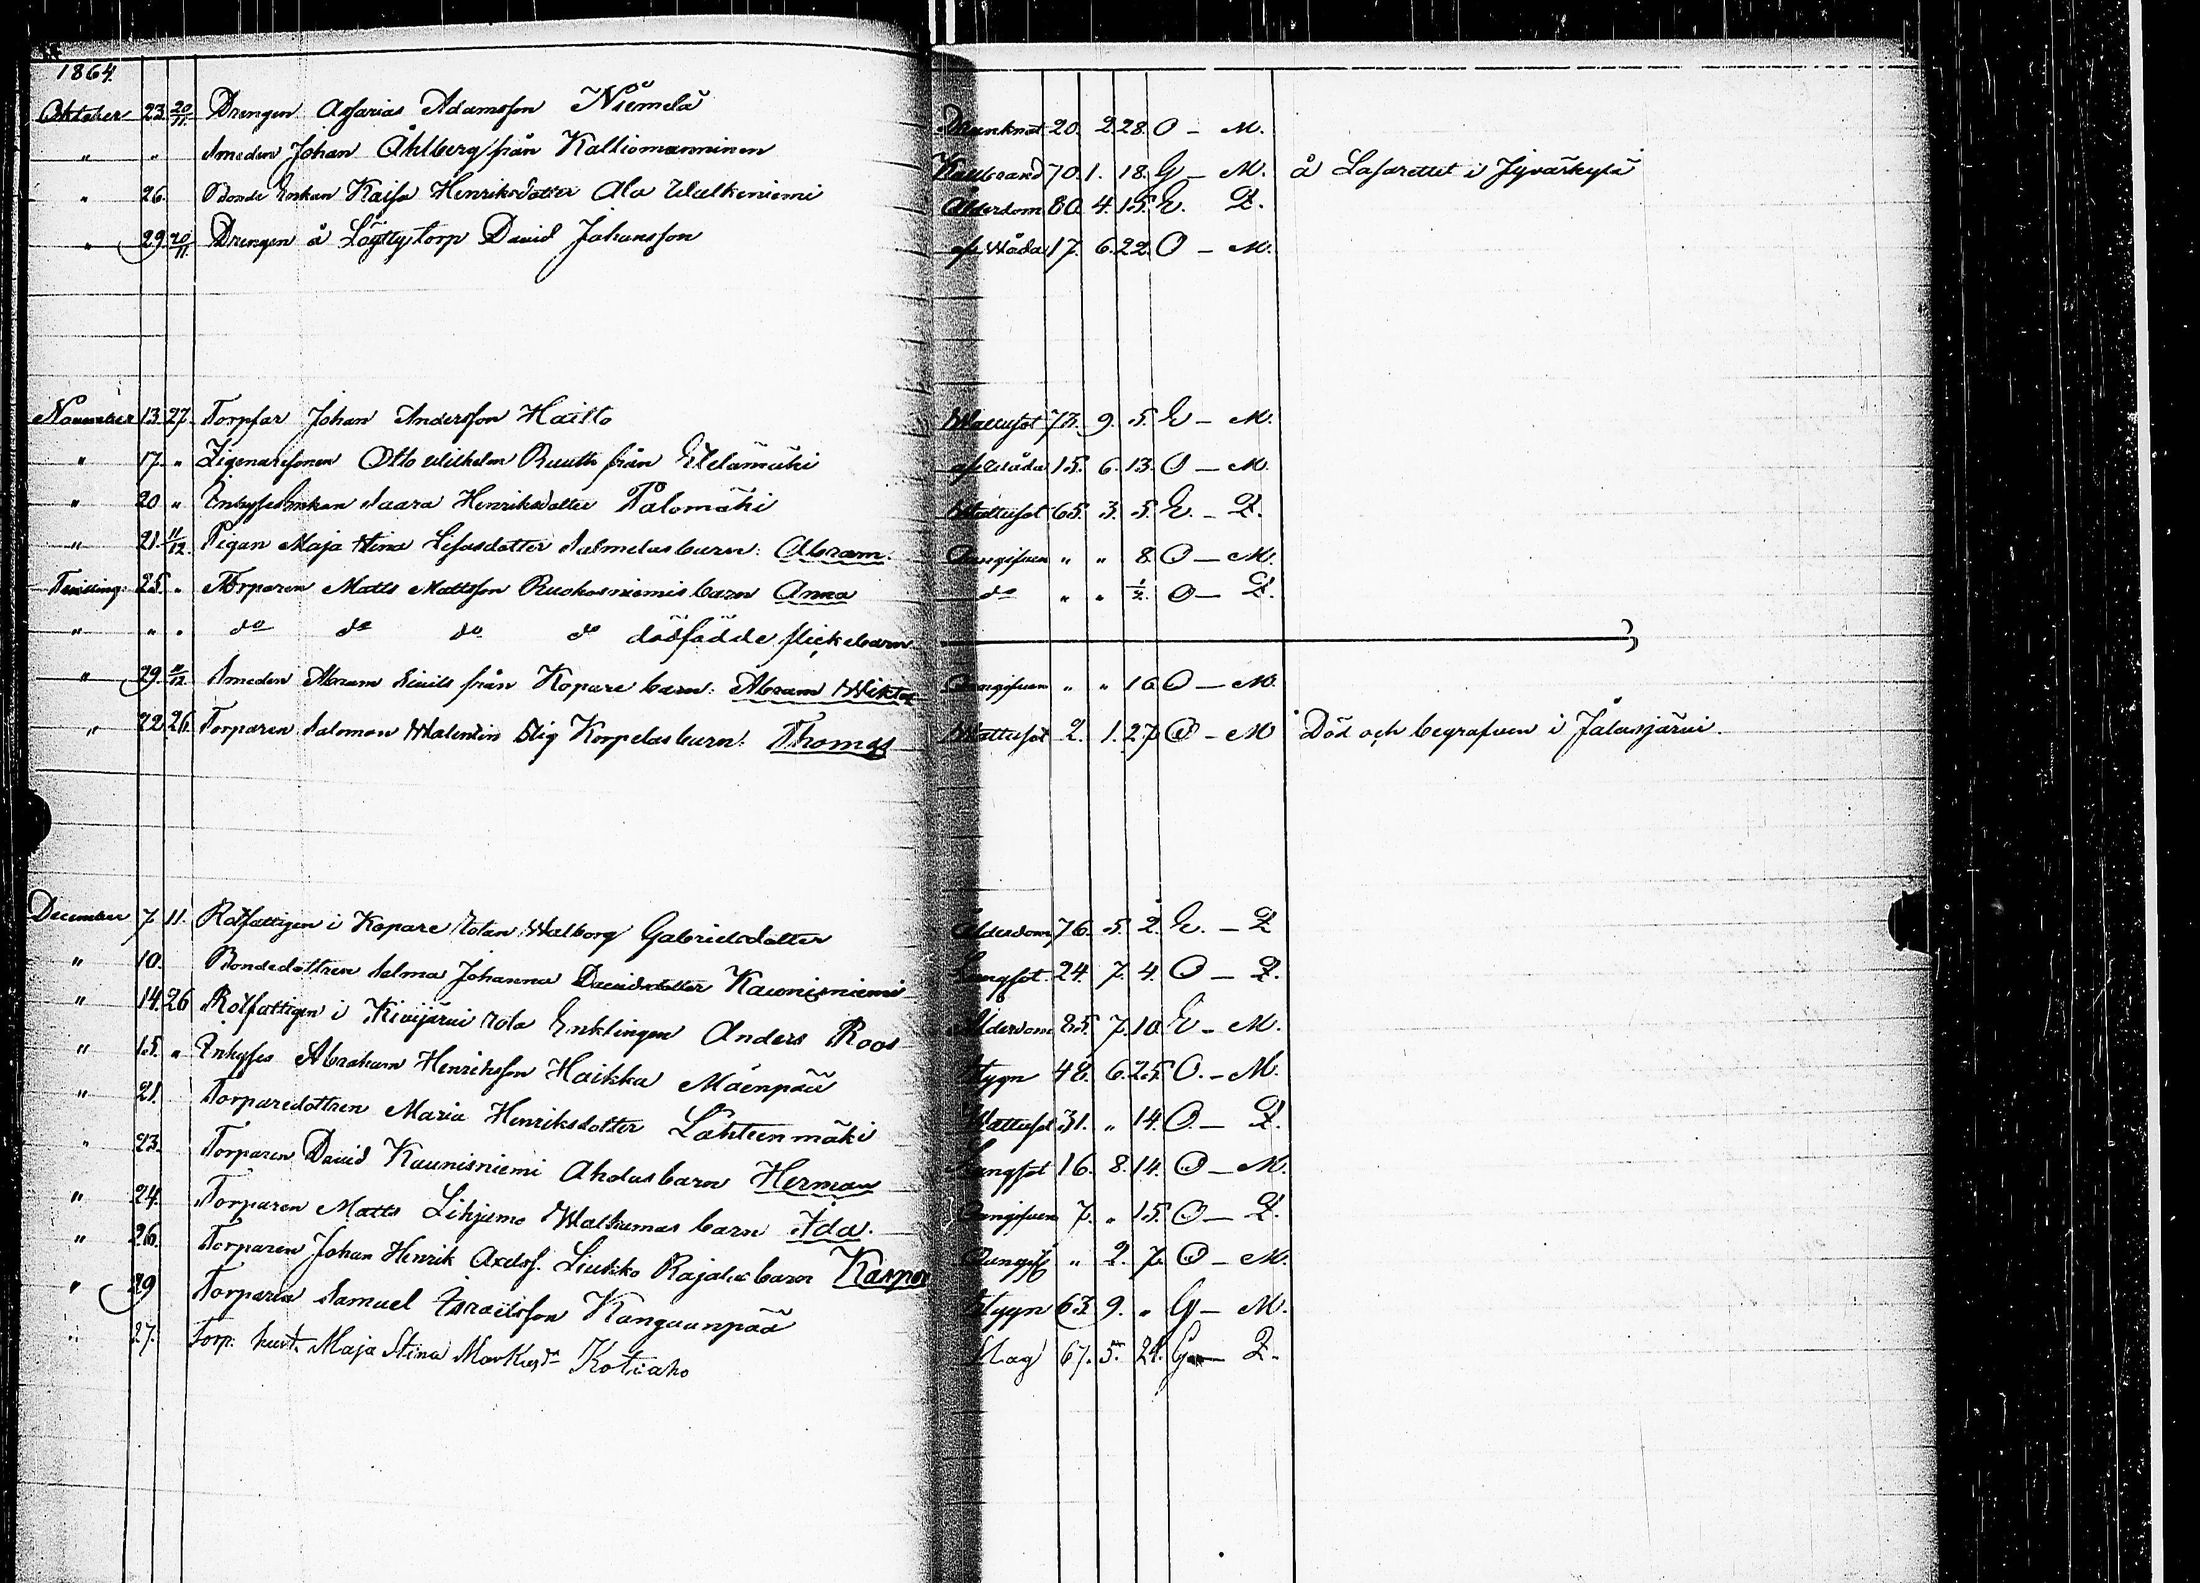 1864.
Oktober 23. 20/11. Drengen Assarias Adamsson Niemelä Drunknat 20. 2. 28. O - M.
" " Smeden Johan Åhlberg från Kalliomanninen Kallbrand 70. 1. 18. G - M. å Lasarettet i Jyväskylä
" 26. Bonde Enkan Kaisa Henriksdotter Ala Walkeniemi Ålderdom 80. 4. 15. E. Q.
" 29. 20/11. Drengen å Löytty torp David Johansson af Våda 17. 6. 22. O - M.
November 13. 27. Torpfar Johan Andersson Haitto Wattusot 73. 9. 5. E - M.
" 17. " Zigenaresonen Otto Wilhelm Ruuth från Etelämäki af Våda 15. 6. 13. O - M.
" 20 " Inhyses Enkan Saara Henriksdotter Palomäki Wattusot 65. 3. 5. E. - Q.
" 21. 11/12. Pigan Maja Stina Lisasdotter Salmelas barn: Abram. Oangifven " " 8. O - M.
Tvilling. 25. " Torparen Matts Mattsson Ruokoniemis barn Anna do " " 1/2. O - Q.
" " " do do do do dödfödde flickebarn
" 29. 11/12. Smeden Abram från Kopare barn: Abram Wiktor Oangifven " " 16 O - M.
" 22. 26. Torparen Salomon Walentin Stig Korpelas barn. Thomas Wattusot 2. 1. 27. O - M Död och begrafven i Jalasjärvi.
December 7. 11. Rotfattigen i Kopare rotan Walborg Gabrielsdotter Ålderdom 76. 5. 2. E. - Q
" 10. Bondedottren Salma Johanna Davidsdotter Kaunisniemi Lungsot. 24. 7. 4. O - Q.
" 14. 26 Rotfattigen i Kivijärvi rota Enklingen Anders Roos Ålderdom 85. 7. 10. E - M.
" 15. " Inhyses Abraham Henriksson Haikka Mäenpää Stygn 48. 6. 25. O. - M.
" 21. Torparedottren Maria Henriksdotter Lähteenmäki Wattusot 31. " 14. O. - Q.
" 23. Torparen David Kaunisniemi Aholas barn Herman Lungsot 16. 8. 14. O - M.
" 24. Torparen Matts Lihjamo Walkamas barn Ida. Oangifven 7. " 15. O - Q.
" 26. Torparen Johan Henrik Axelss. Liukko Rajalas barn Kasper Oangif. " 2. 7. O - M.
" 29 Torparen Samuel Israelsson Kangaanpää Stygn 63. 9. " G - M.
" 27. Torp. hust. Maja Stina Markusdr Kotiaho Slag 67. 5. 21. G - Q.